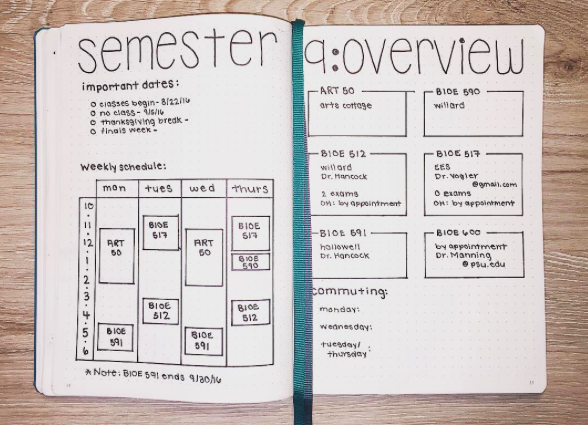 semester 9:overview
important dates:
o classes begin- 8/22/16
o no class- 9/5/16
o thanksgiving break -
o finals week -
Weekly schedule:
mon tues wed thurs
10
11
12
1
2
3
4
5
6
ART 50
BIOE 591
BIOE 517
BIOE 512
ART 50
BIOE 591
BIOE 517
BIOE 590
BIOE 512
*Note: BIOE 591 ends 9/20/16
ART 50
arts cottage
BIOE 590
willard
BIOE 512
willard
Dr. Hancock
2 exams
OH: by appointment
BIOE 517
EES
Dr. Vogler
@gmail.com
0 exams
OH: by appointment
BIOE 591
hallowell
Dr. Hancock
BIOE 600
by appointment
Dr. Manning
@psu.edu
commuting:
monday:
wednesday:
tuesday/
thursday: